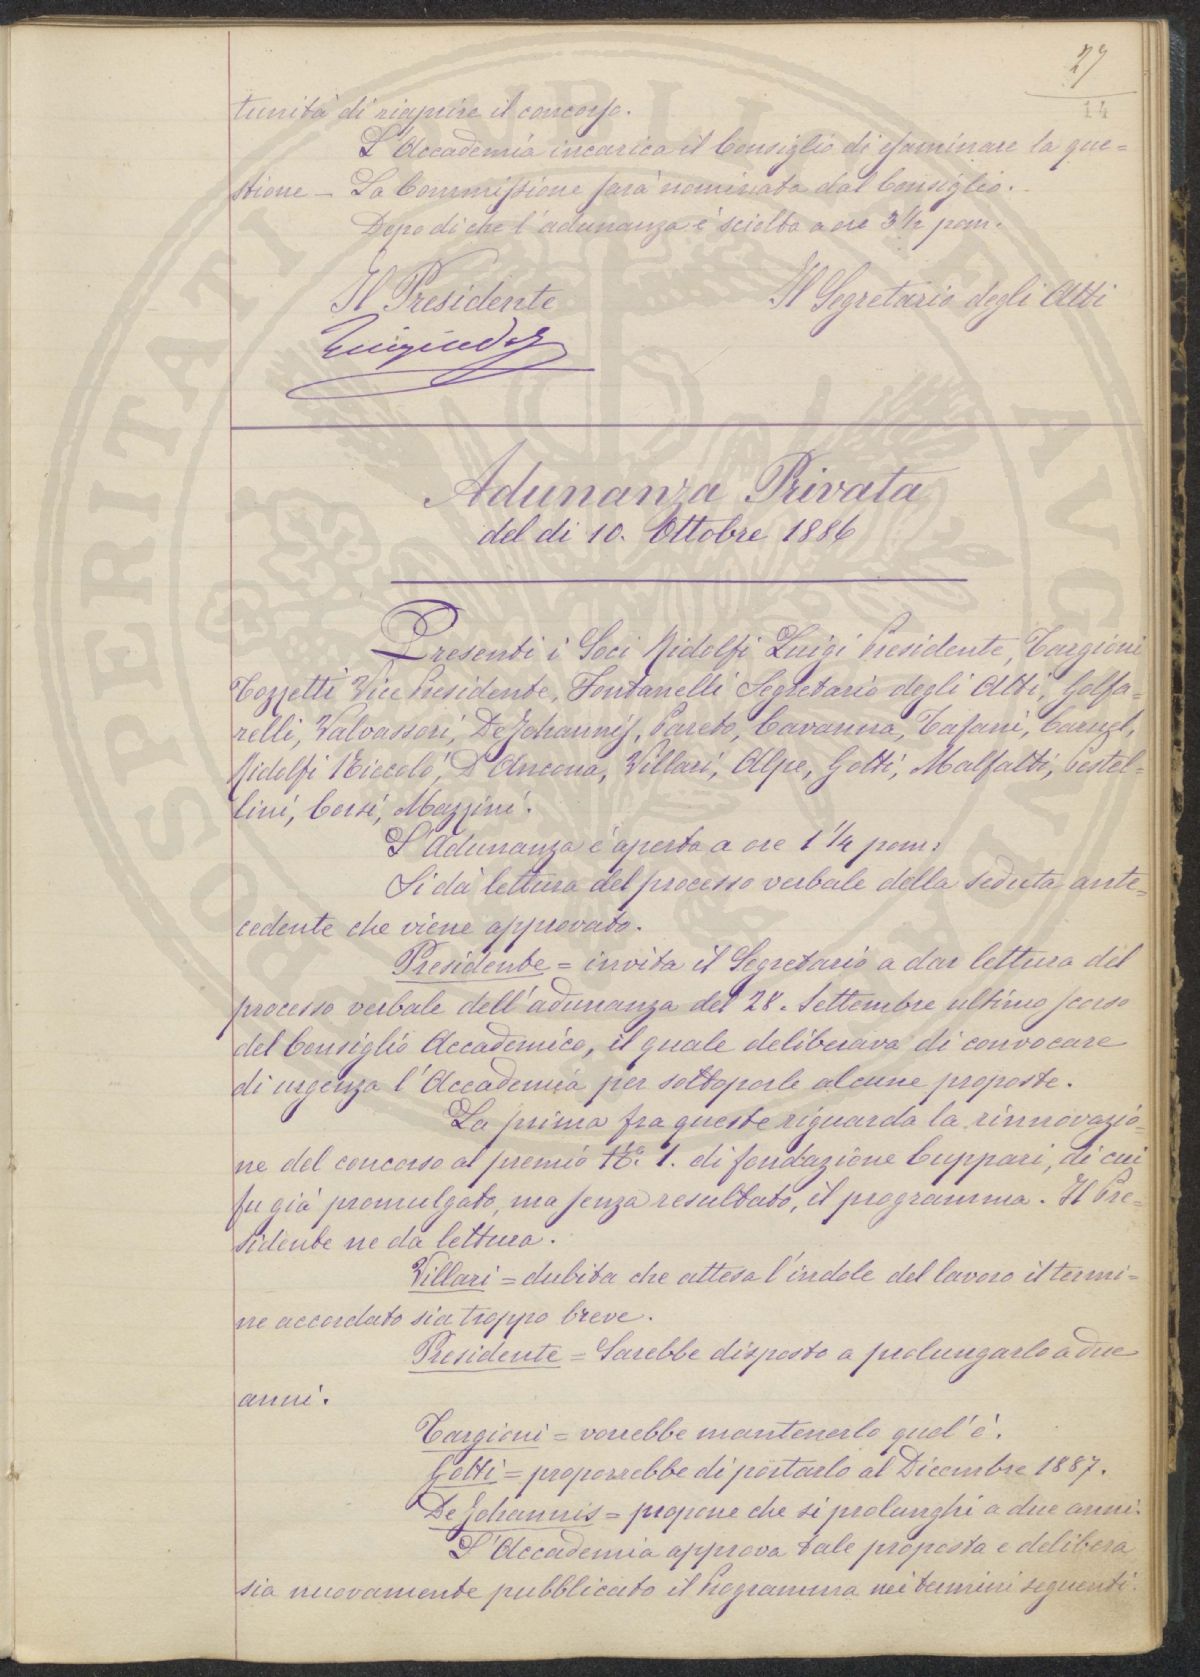 27
14
tunità di riaprire il concorso.
L'Accademia incarica il Consiglio di esaminare la que=
stione — La Commissione sarà nominata dal Consiglio.
Dopo di che l'adunanza è sciolta a ore 3 ½ pom.
Il Presidente Il Segretario degli Atti
Adunanza Privata
del dì 10. Ottobre 1886
Presenti i Soci Ridolfi Luigi Presidente, Targioni
Tozzetti Vice Presidente, Fontanelli Segretario degli Atti, Golfa=
relli, Valvassori, De Johannis, Pareto, Cavanna, Tafani, Caruel,
Ridolfi Niccolò, D'Ancona, Villari, Alpe, Gotti, Malfatti, Pestel=
lini, Corsi, Mazzini.
L'Adunanza è aperta a ore 1 ¼ pom:
Si dà lettura del processo verbale della seduta ante=
cedente che viene approvato.
Presidente = invita il Segretario a dar lettura del
processo verbale dell'adunanza del 28. Settembre ultimo scorso
del Consiglio Accademico, il quale deliberava di convocare
di urgenza l'Accademia per sottoporle alcune proposte.
La prima fra queste riguarda la rinnovazio=
ne del concorso al premio No. 1. di fondazione Cuppari, di cui
fu già promulgato, ma senza resultato, il programma. Il Pre=
sidente ne dà lettura.
Villari = dubita che attesa l'indole del lavoro il termi=
ne accordato sia troppo breve.
Presidente = Sarebbe disposto a prolungarlo a due
anni.
Targioni = vorrebbe mantenerlo qual'è.
Gotti = proporrebbe di portarlo al Dicembre 1887.
De Johannis = propone che si prolunghi a due anni.
L'Accademia approva tale proposta e delibera
sia nuovamente pubblicato il Programma nei termini seguenti: